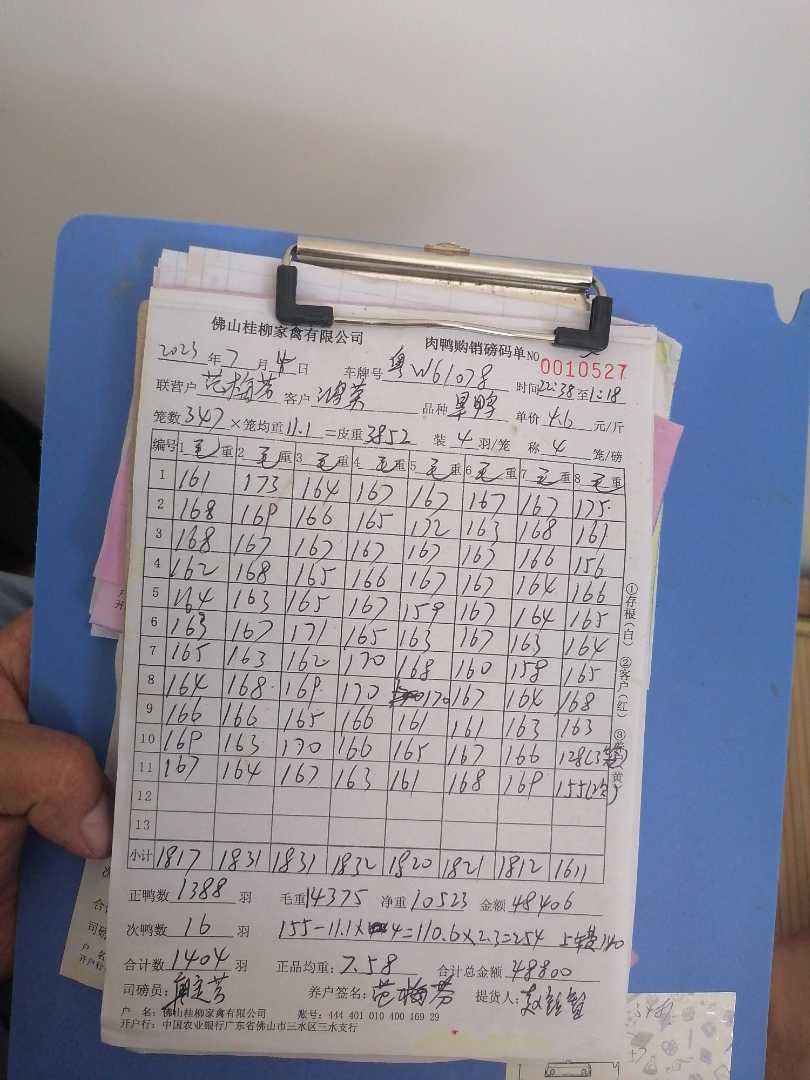 佛山桂柳家禽有限公司 肉鸭购销磅码单 NO 0010527
2023 年 7 月 4 日 车牌号 粤W61078 时间 22:38 至 1:18
联营户 范梅芳 客户 鸿荣 品种 旱鸭 单价 4.6 元/斤
笼数 347 ×笼均重 11.1 =皮重 3852 装 4 羽/笼 称 4 笼/磅
编号 1 毛重 2 毛重 3 毛重 4 毛重 5 毛重 6 毛重 7 毛重 8 毛重
1 161 173 164 167 167 167 167 175
2 168 169 166 165 172 163 168 161
3 168 167 167 167 167 163 166 156
4 162 168 165 166 167 167 164 166
5 164 163 165 167 159 167 164 165
6 163 167 171 165 163 167 163 164
7 165 163 162 170 168 160 158 165
8 164 168 169 170 170 167 164 168
9 166 166 165 166 161 161 163 163
10 169 163 170 166 165 167 166 128(3笼)
11 167 164 167 163 161 168 169 155(次)
12
13
小计 1817 1831 1831 1832 1820 1821 1812 1611
正鸭数 1388 羽 毛重 14375 净重 10523 金额 48406
次鸭数 16 羽 155-11.1×4=110.6×2.3=254 140
合计数 1404 羽 正品均重: 7.58 合计总金额 48800
司磅员: 养户签名: 范梅芳 提货人:
户 名: 佛山桂柳家禽有限公司 账号: 444 401 010 400 169 29
开户行: 中国农业银行广东省佛山市三水区三水支行
①存根(白) ②客户(红) ③ 黄